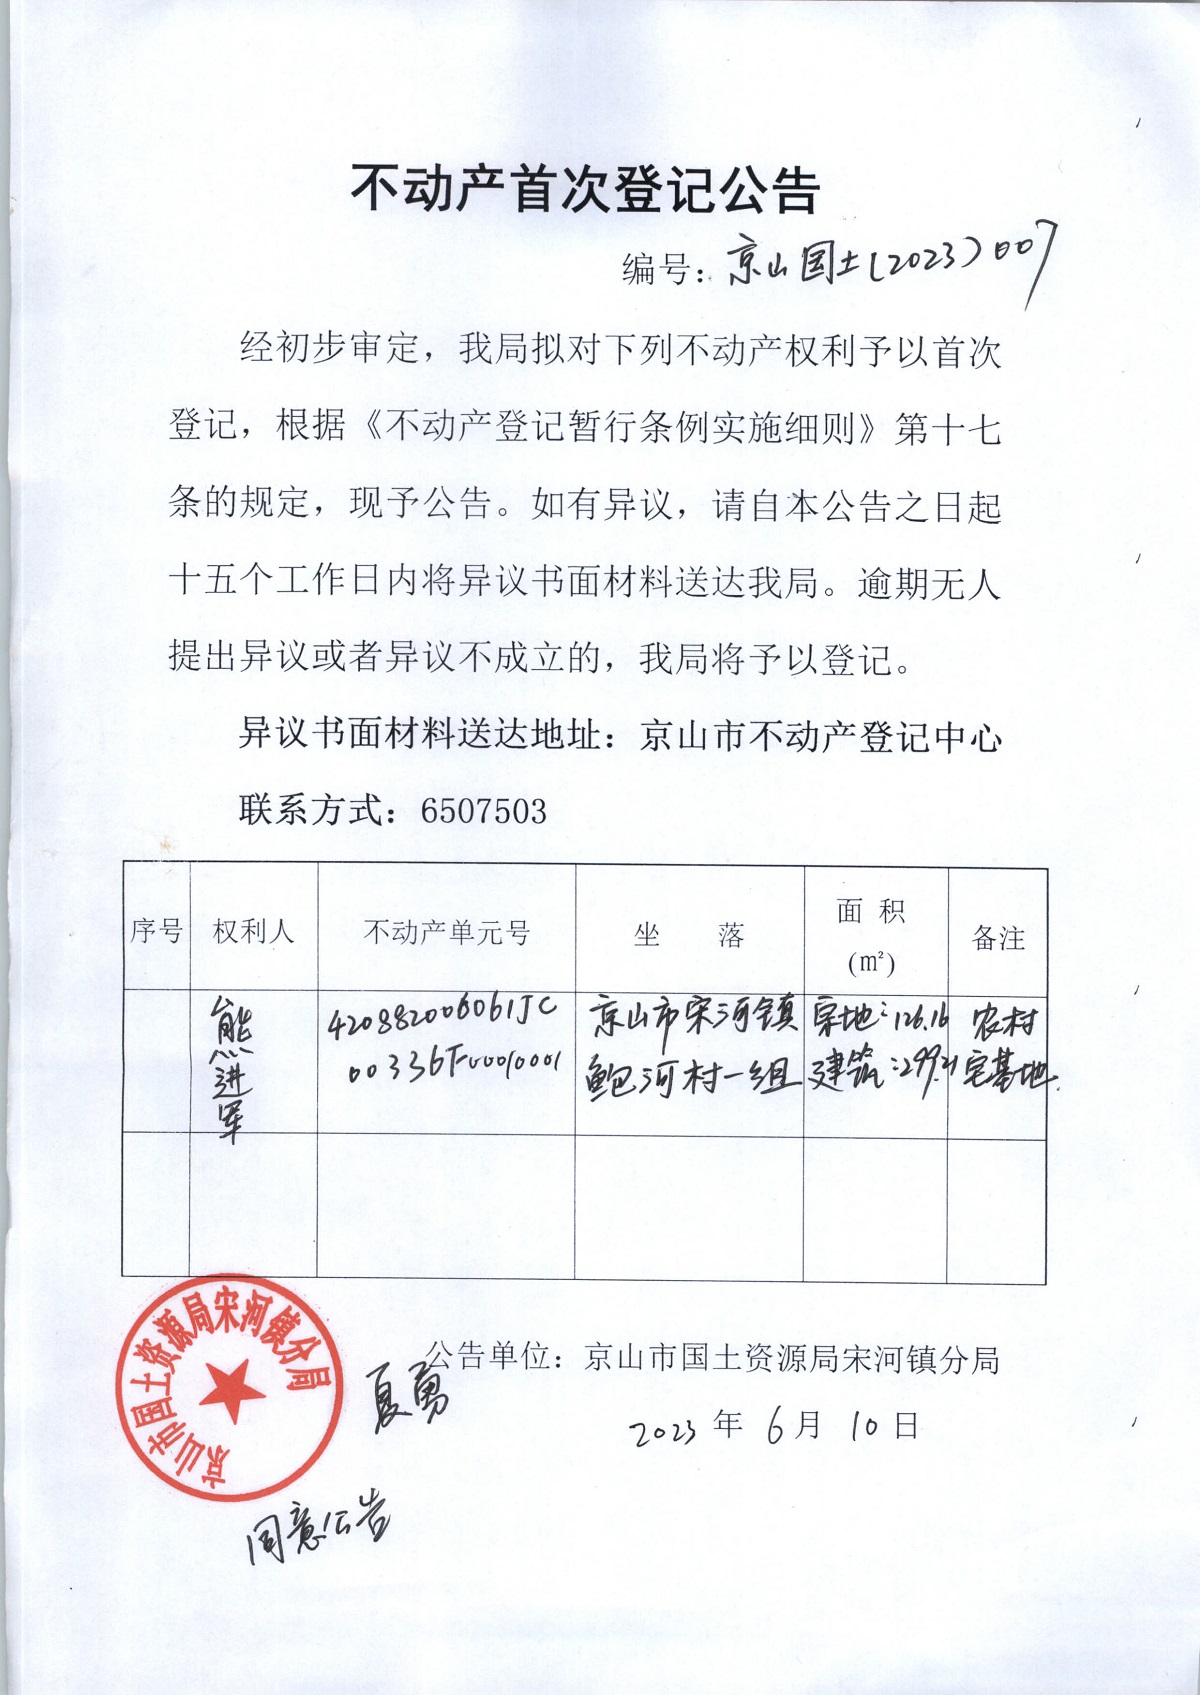 不动产首次登记公告
编号：京山国土(2023)007
经初步审定，我局拟对下列不动产权利予以首次
登记，根据《不动产登记暂行条例实施细则》第十七
条的规定，现予公告。如有异议，请自本公告之日起
十五个工作日内将异议书面材料送达我局。逾期无人
提出异议或者异议不成立的，我局将予以登记。
异议书面材料送达地址：京山市不动产登记中心
联系方式：6507503
序号 权利人 不动产单元号 坐 落 面 积 (㎡) 备注
熊进军 420882006061JC 京山市宋河镇 宗地：126.16 农村
00336F00010001 鲍河村一组 建筑：299.21 宅基地
京山市国土资源局宋河镇分局
公告单位：京山市国土资源局宋河镇分局
夏勇
2023 年 6 月 10 日
同意公告